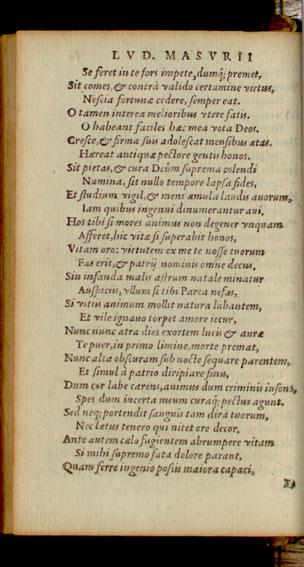 LVD. MASVRII
Se feret in te fors impete, dumq́; premet,
Sit comes, & contrà valido certamine virtus,
Nescia fortunæ cedere, semper eat.
O tamen interea melioribus vtere fatis.
O habeant faciles hæc mea vota Deos.
Cresce, & firma suis adolescat mensibus ætas.
Hæreat antiquæ pectore gentis honos.
Sit pietas, & cura Deûm suprema colendi
Numina, sit nullo tempore lapsa fides,
Et studium vigil, & mens æmula laudis auorum,
Iam quibus ingenui dinumerantur aui.
Hos tibi si mores animus non degener vnquam
Afferet, hic vitæ si superabit honos,
Vitam oro: virtutem ex me te nosse tuorum
Fas erit, & patrij nominis omne decus.
Sin infanda malis astrum natale minatur
Auspicijs, vllum si tibi Parca nefas,
Si vitijs animum mollit natura labantem,
Et vile ignauo torpet amore iecur,
Nunc nunc atra dies exortem lucis & auræ
Te puer, in primo limine, morte premat,
Nunc alta obscuram sub nocte sequare parentem,
Et simul à patrio diripiare sinu,
Dum cor labe carens, animus dum criminis insons,
Spes dum incerta meum curaq́; pectus agunt.
Sed neq; portendit sanguis tam dira tuorum,
Nec letus tenero qui nitet ore decor.
Ante autem cælo fugientem abrumpere vitam
Si mihi supremo fata dolore parant,
Quàm ferre ingenio possis maiora capaci,